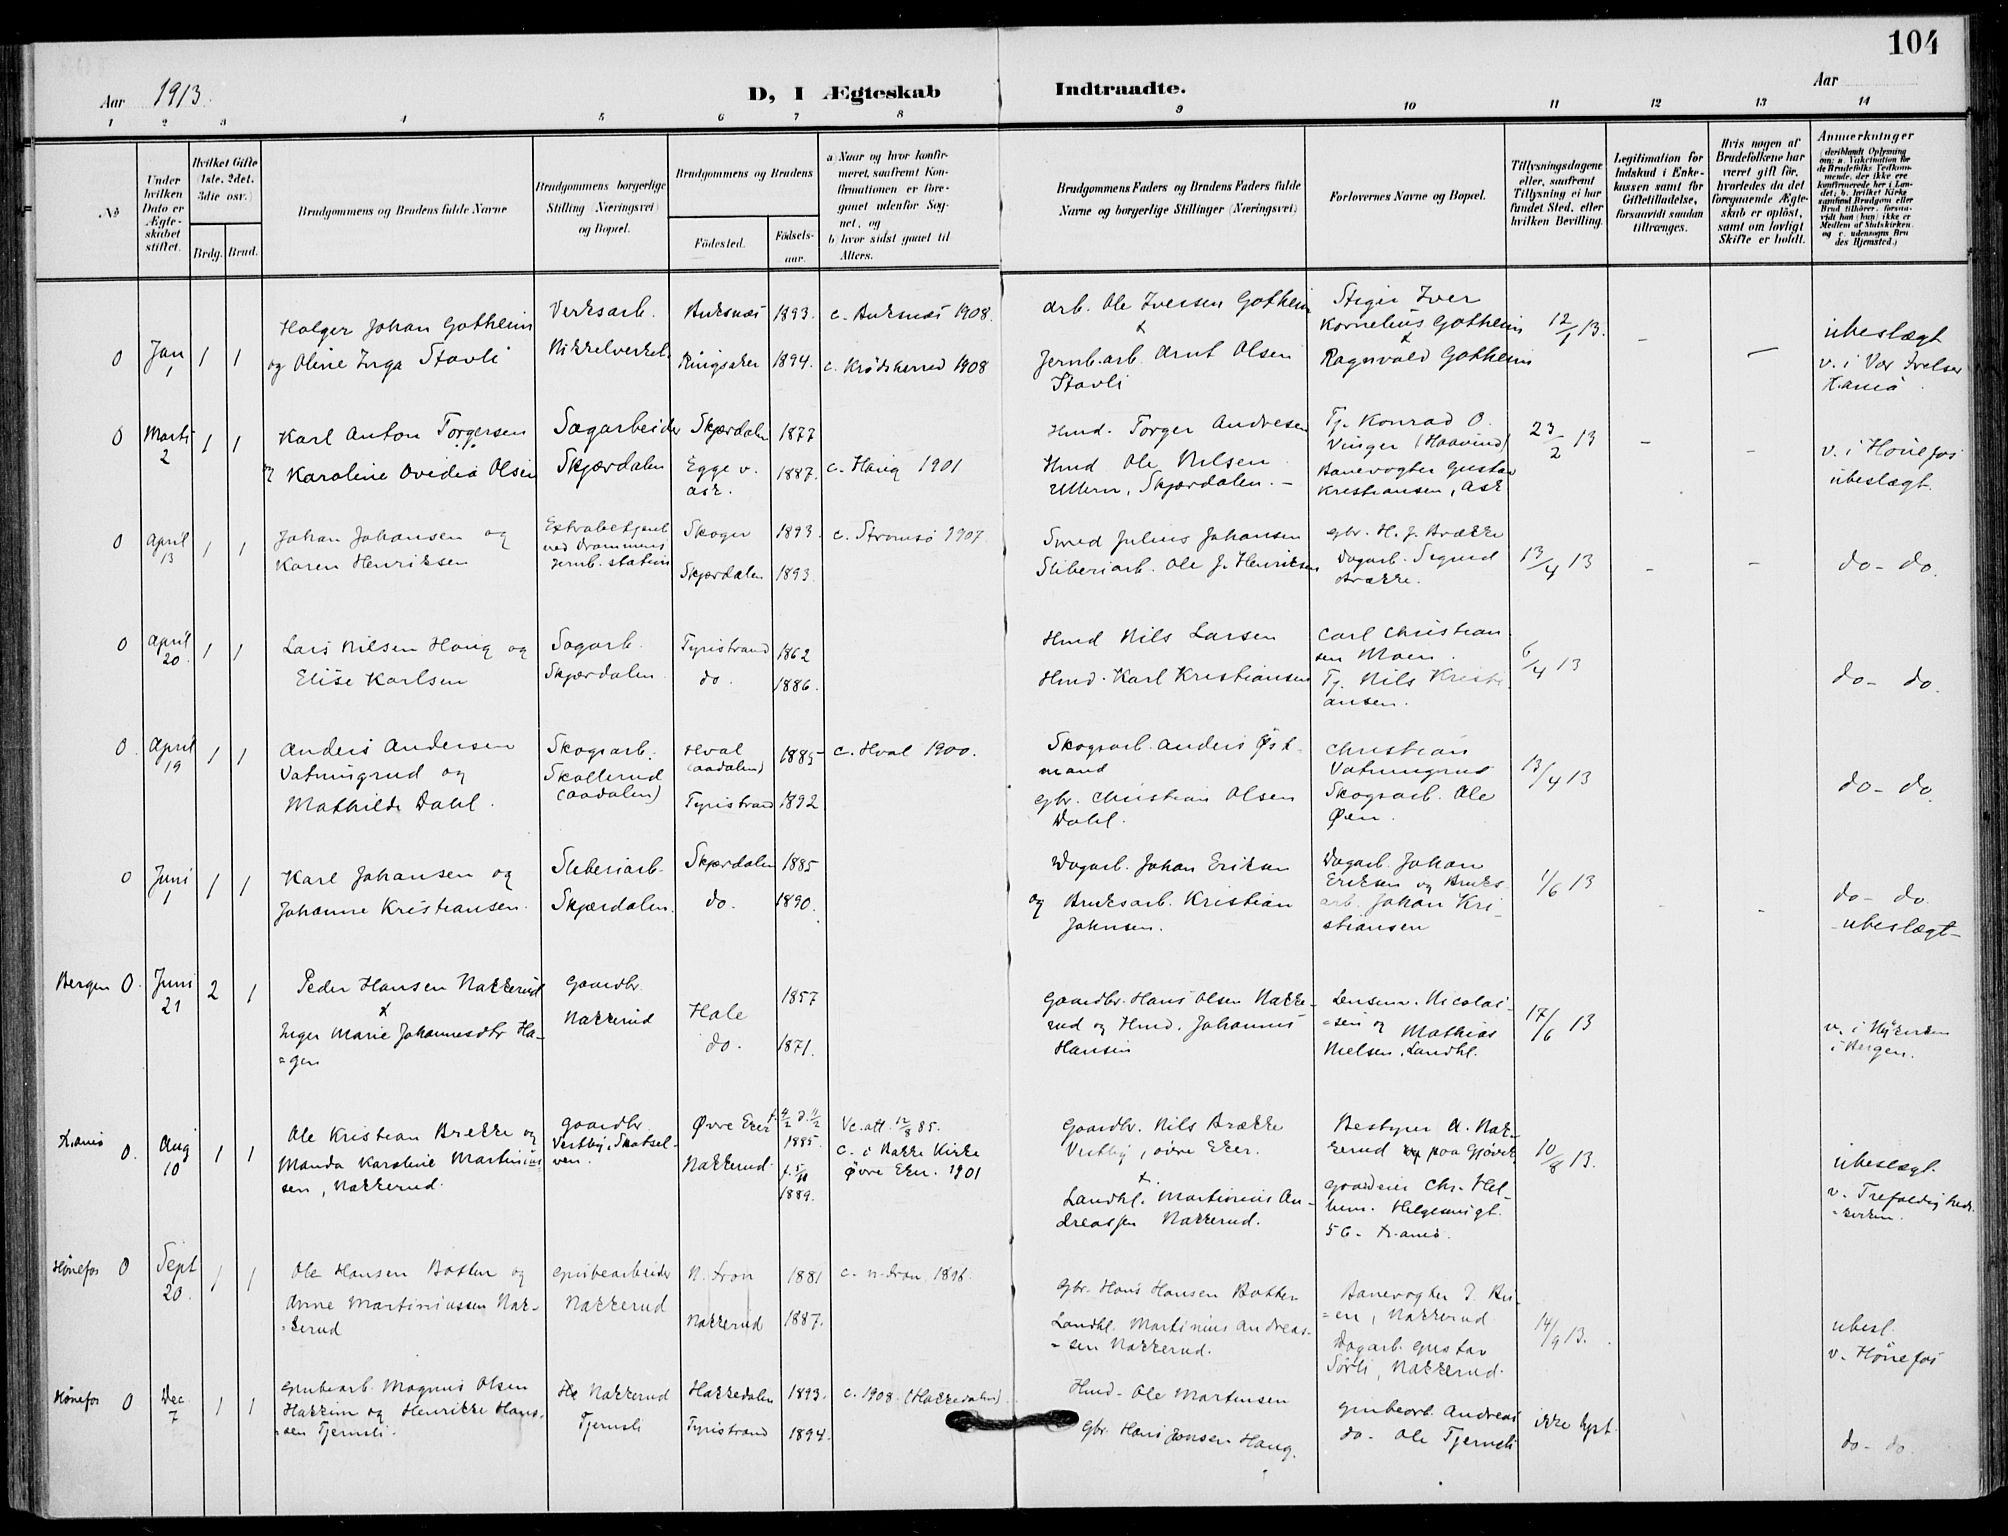 104
Aar 1913.
D, I Ægteskab Indtraadte.
Aar
1 2 3 4 5 6 7 8 9 10 11 12 13 14
No
Under hvilken Dato er Ægteskabet stiftet.
Hvilket Gifte (1ste, 2det, 3die osv.)
Brdg. Brud.
Brudgommens og Brudens fulde Navne
Brudgommens borgerlige Stilling (Næringsvei) og Bopæl.
Brudgommens og Brudens
Fødested.
Fødselsaar.
a) Naar og hvor konfirmeret, saafremt Konfirmationen er foregaaet udenfor Sognet, og
b) hvor sidst gaaet til Alters.
Brudgommens Faders og Brudens Faders fulde Navne og borgerlige Stillinger (Næringsvei)
Forlovernes Navne og Bopæl.
Tillysningsdagene eller, saafremt Tillysning ei har fundet Sted, efter hvilken Bevilling.
Legitimation for Indskud i Enkekassen samt for Giftetilladelse, forsaavidt saadan tiltrænges.
Hvis nogen af Brudefolkene har været gift før, hvorledes da det foregaaende Ægteskab er opløst, samt om lovligt Skifte er holdt.
Anmærkninger (deriblandt Oplysning om: a. Vakcination for de Brudefolks Vedkommende, der ikke ere konfirmerede her i Landet; b. hvilket Kirkesamfund Brudgom eller Brud tilhører, forsaavidt han (hun) ikke er Medlem af Statskirken, og c. udensogns Brudes Hjemsted.)
0 Jan 1 1 1
Holger Johan Gotheim
og Oline Inga Stavli
Verksarb.
Nikkelverket
Buksnæs 1893. c. Buksnæs 1908.
Ringsaker 1894. c. Krødsherred 1908
Arb. Ole Iversen Gotheim
Jernb.arb. Arnt Olsen
Stavli
Stiger Iver
Kornelius Gotheim
Ragnvald Gotheim
12/1 13. - -
ubeslægt
v. i Vor Frelser
0 Marts 2 1 1
Karl Anton Torgersen
Karoline Ovidia Olsen
Sagarbeider
Skjærdalen
Skjærdalen 1877
Egge v.
Ask. 1887. c. Haug 1901
Hmd. Torger Andresen
Hmd Ole Nilsen
Ullern, Skjærdalen. -
Tj. Konrad O.
Vinger (Haavind)
Banevogter Gustav
Kristiansen, Ask
23/2 13 - -
v. i Hønefos
ubeslægt.
0 April 13 1 1
Johan Johansen og
Karen Henriksen
Extrabetjent
ved Drammens
jernb. station
Skoger 1893. c. Strømsø 1907.
Skjærdalen 1893.
Smed Julius Johansen
Sliberiarb. Ole J. Henriksen
gbr. H. J. Brække
Dagarb. Sigurd
Brække.
13/4 13 - -
do - do.
0 April 20. 1 1
Lars Nilsen Haug og
Elise Karlsen
Sagarb.
Skjærdalen.
Tyristrand 1862
do. 1886.
Hmd Nils Larsen
Hmd. Karl Kristiansen
Carl Christian
sen Moen.
Tj. Nils Kristi-
ansen.
6/4 13
do - do.
0. April 19 1 1
Anders Andersen
Vatningrud og
Mathilde Dahl.
Skogsarb.
Skollerud
(Aadalen)
Hval
(Aadalen) 1885 c. Hval 1900.
Tyristrand 1892
Skogsarb. Anders Øst-
mand
gbr. Christian Olsen
Dahl.
Christian
Vatningrud
Skogsarb. Ole
Øen.
13/4 13
do - do
0 Juni 1 1 1
Karl Johansen og
Johanne Kristiansen.
Sliberiarb.
Skjærdalen.
Skjærdalen 1885
do. 1890.
Dagarb. Johan Eriksen
og Bruksarb. Kristian
Johnsen.
Dagarb. Johan
Eriksen og Bruks-
arb. Johan Kri-
stiansen
1/6 13
do - do.
- ubeslægt -
Bergen 0. Juni 21 2 1
Peder Hansen Nakkerud
Inger Marie Johannesdtr Ha-
=gen
Gaardbr.
Nakkerud
Hole 1857
do. 1871.
Gaardbr. Hans Olsen Nakke-
rud og Hmd. Johannes
Hansen
Lensmv. Nicolai-
=sen og Mathias
Nielsen, Landhl.
17/6 13
v. i Nykirken
i Bergen.
0. Aug 10 1 1
Ole Kristian Brekke og
Manda Karoline Martinius
sen, Nakkerud.
Gaardbr.
Vestby, Skotsel-
ven.
Øvre Eker 1885.
Nakkerud. 1889.
Vc. att. 12/8 85.
c. i Bakke Kirke
Øvre Eker. 1901
Gaardbr. Nils Brække
Vestby, øvre Eker.
Landhl. Martinius An-
dreassen Nakkerud.
Bestyrer A. Nak-
kerud paa Gjøvik
gaardeier Chr. Hel-
hem. Helgesensgt.
56 -
10/8 13.
ubeslægt.
v. Trefoldigheds-
=kirken.
Hønefos 0 Sept 20. 1 1
Ole Hansen Botten og
Anne Martiniussen Nak-
=kerud
grubearbeider
Nakkerud
N. Fron 1881 c. n. Fron 1896.
Nakkerud 1887.
Gbr. Hans Hansen Botten
Landhl. Martinius Andreas-
=sen Nakkerud.
Banevogter
=en, Nakkerud
Dagarb. Gustav
Sørli, Nakkerud.
14/9 13.
ubesl.
v. Hønefos
Hønefos 0 Dec 7 1 1
grubearb. Magnus Olsen
Hakkim og Henrikke Hans-
=sen Tjernsli.
Nakkerud
Tjernsli
Hakkedalen 1893. c. 1908. (Hakkedalen)
Tyristrand 1894.
Hmd. Ole Martinsen
Gbr. Hans Jensen Haug.
grubearb. Andreas
do - Ole Tjernsli
ikke lyst.
do - do.